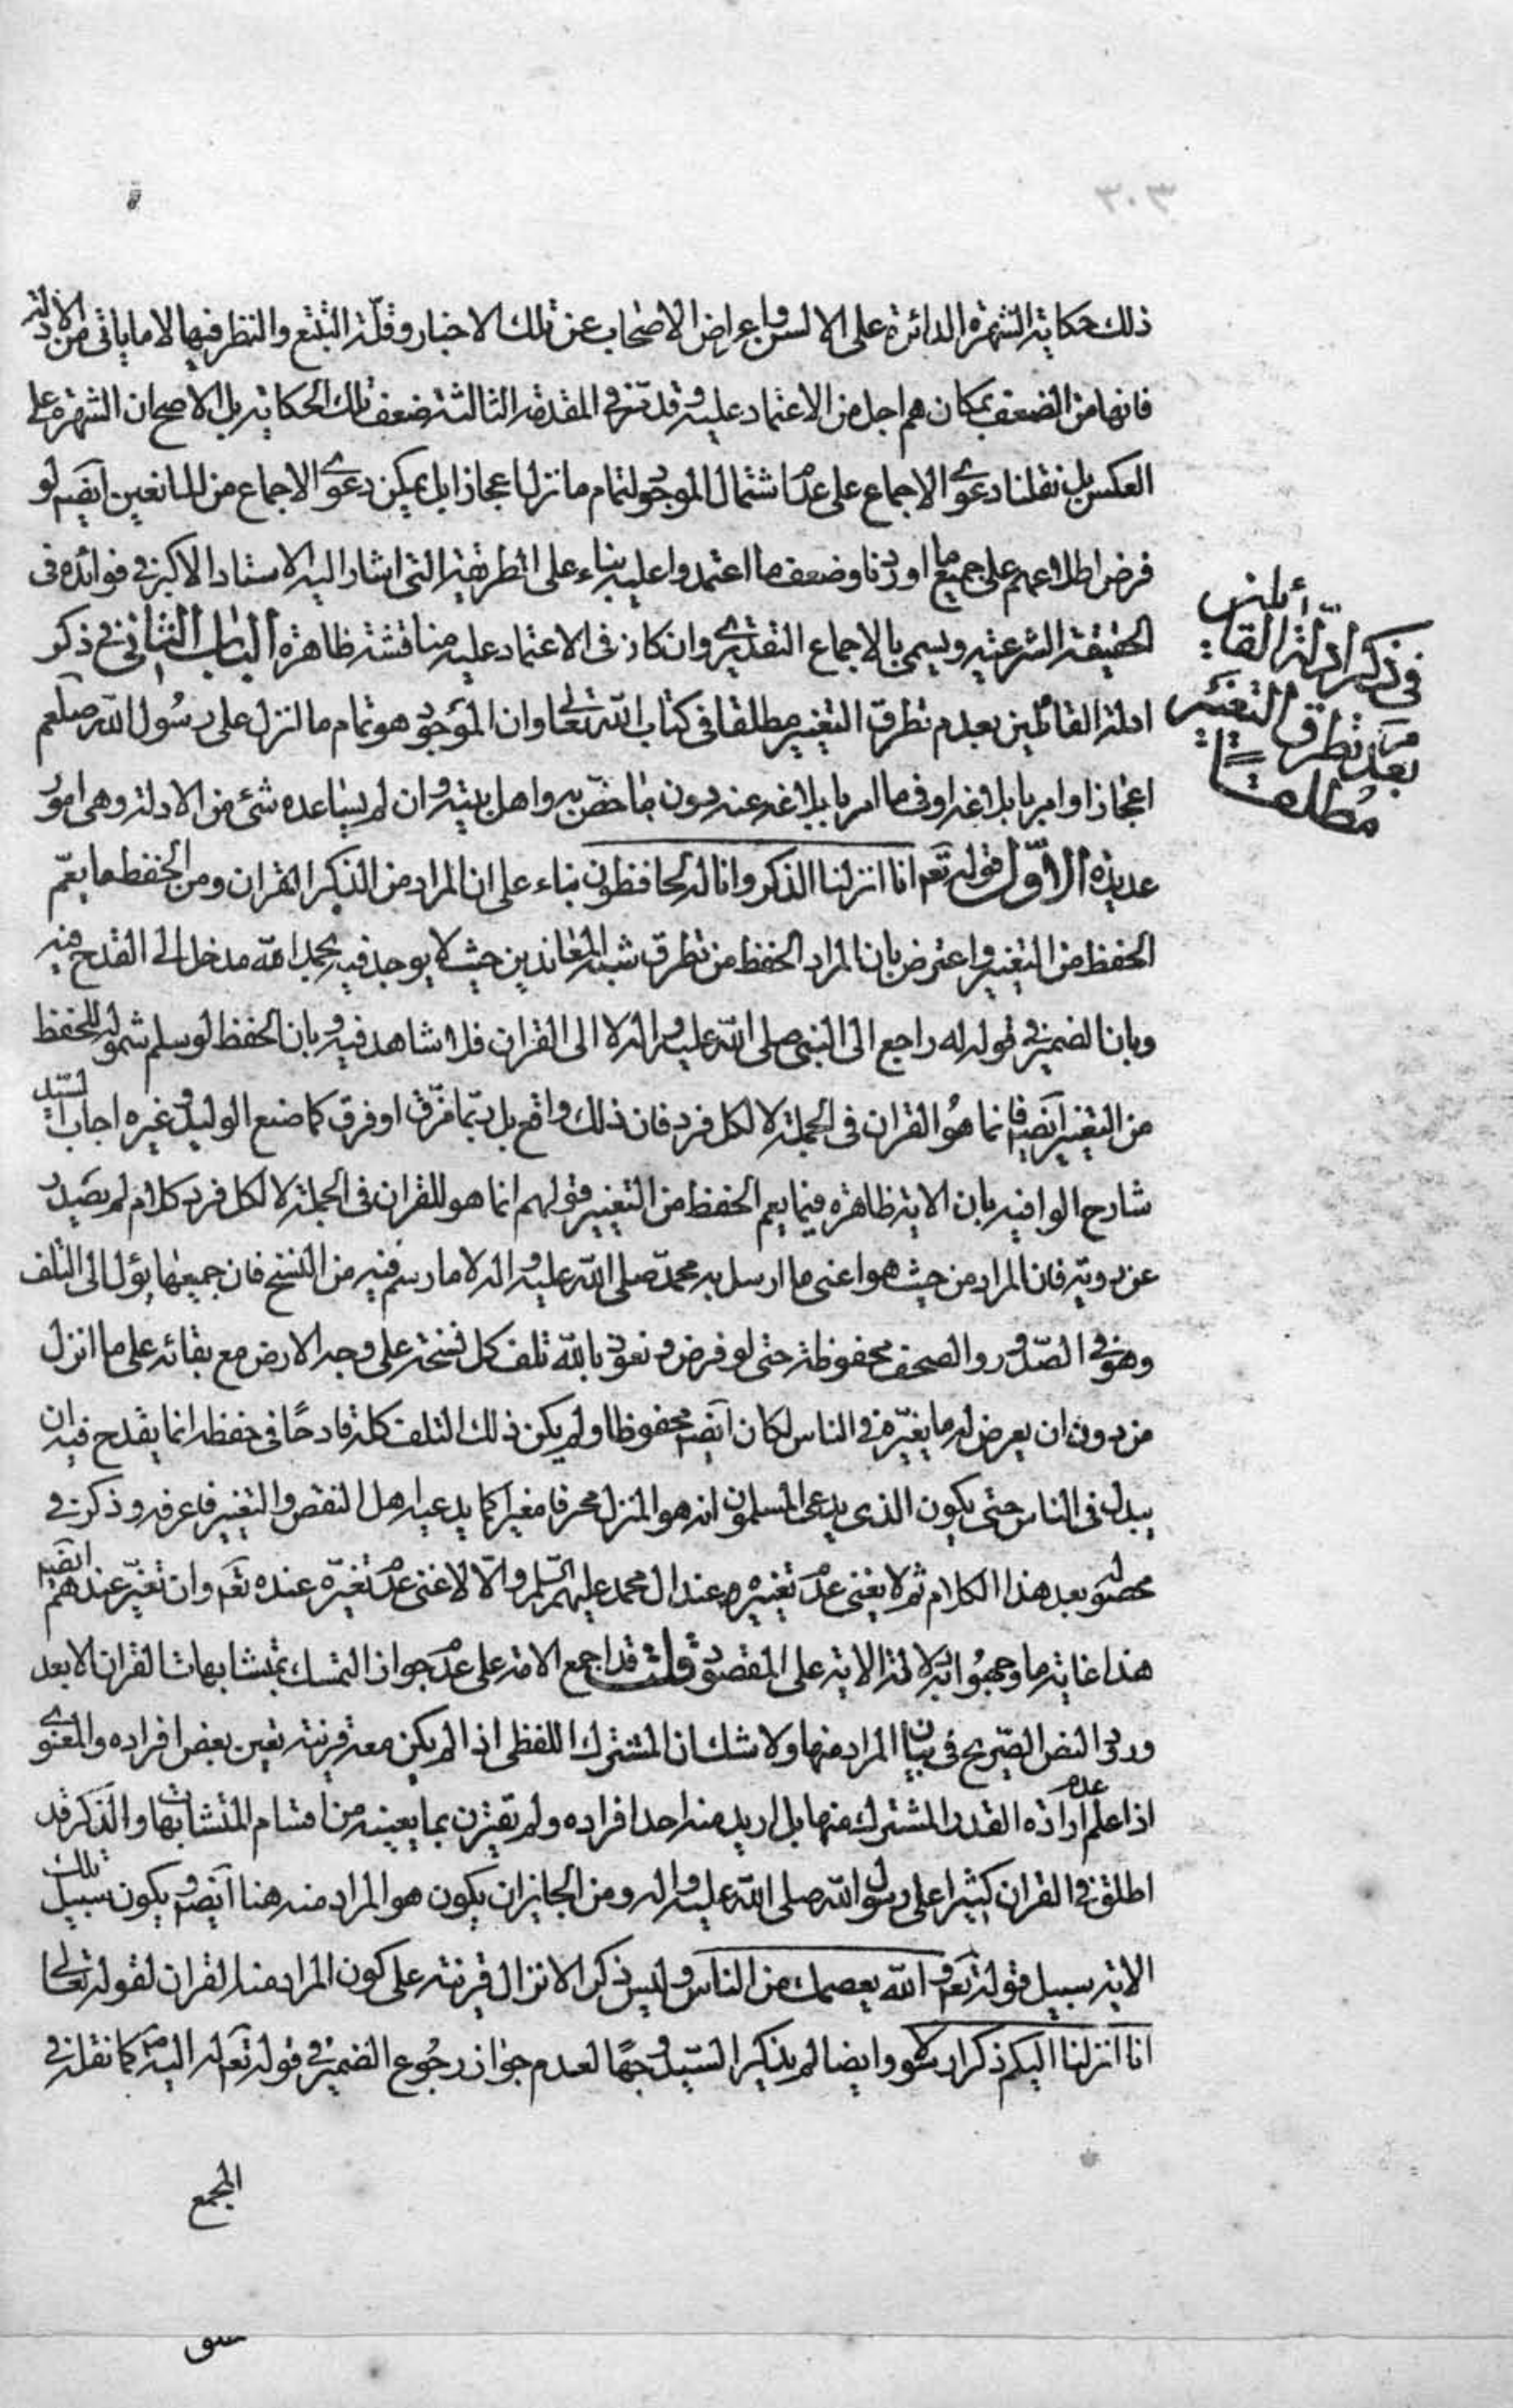 ٣٠٣
ذلك حكاية الشهرة الدائرة على الالسن واعراض الاصحاب عن تلك الاخبار وقلة التتبع والنظر فيها لا ما ياتى من الادلة
فانها من الضعف بمكان هم اجل من الاعتماد عليه وقد مر فى المقدمة الثالثة ضعف تلك الحكاية بل الاصح ان الشهرة على
العكس بل نقلنا دعوى الاجماع على عدم اشتمال الموجود لتمام ما نزل اعجازا بل يمكن دعوى الاجماع من المانعين ايضا لو
فرض اطلاعهم على جميع ما اوردنا وضعف ما اعتمدوا عليه بناء على الطريقة التى اشار اليه الاستاد الاكبر فى فوائده فى
الحقيقة الشرعية ويسمى بالاجماع التقديرى وان كان فى الاعتماد عليه مناقشة ظاهرة الباب الثانى فى ذكر
ادلة القائلين بعدم تطرق التغيير مطلقا فى كتاب الله تعالى وان الموجود هو تمام ما انزل على رسول الله صلعم
اعجازا او امر بابلاغه او فيما امر بابلاغه عنه دون ما خص به واهل بيته وان لم يساعده شئ من الادلة وهى امور
عديدة الاول قوله تعم انا انزلنا الذكر وانا له لحافظون بناء على ان المراد من الذكر القران ومن الحفظ ما يعم
الحفظ من التغيير واعترض بان المراد الحفظ من تطرق شبه المعاندين حيث لا يوجد فيه بحمد الله مدخل الى القدح فيه
وبان الضمير فى قوله له راجع الى النبى صلى الله عليه واله لا الى القران فلا شاهد فيه وبان الحفظ لو سلم شموله للحفظ
من التغيير ايضا فانما هو القران فى الجملة لا لكل فرد فان ذلك واقع بل ربما مزق او فرق كما صنع الوليد وغيره اجاب السيد
شارح الوافية بان الاية ظاهرة فيما يعم الحفظ من التغيير وقولهم انما هو للقران فى الجملة لا لكل فرد كلام لم يصدر
عن روية فان المراد من حيث هو اعنى ما ارسل به محمد صلى الله عليه واله لا ما رسم فيه من النسخ فان جميعها يؤل الى التلف
وهو فى الصدور والصحف محفوظة حتى لو فرض ونعوذ بالله تلف كل نسخة على وجه الارض مع بقائه على ما انزل
من دون ان يعرض له ما يغيره فى الناس لكان ايضا محفوظا ولم يكن ذلك التلف كله قادحًا فى حفظه انما يقدح فيه ان
يبدل فى الناس حتى يكون الذى يدعى المسلمون انه هو المنزل محرفا مغيرا كما يدعيه اهل النقص والتغيير فاعرفه وذكر فى
محصوله بعد هذا الكلام ثم لا يغنى عدم تغييره عند ال محمد عليهم السلم والا لاغنى عدم تغيره عنده تعم وان تغير عندهم ايضا
هذا غاية ما وجهوا به دلالة الاية على المقصود قلت قد اجمع الامة على عدم جواز التمسك بمتشابهات القران الا بعد
ورود النص الصريح فى بيان المراد منها ولا شك ان المشترك اللفظى اذا لم يكن معه قرينة تعين بعض افراده والمعنوى
اذا علم عدم ارادة القدر المشترك منها بل اريد منه احد افراده ولم تقترن بما يعينه من اقسام المتشابهات والذكر قد
اطلق فى القران كثيرا على رسول الله صلى الله عليه واله ومن الجايز ان يكون هو المراد منه هنا ايضا ويكون سبيل تلك
الاية سبيل قوله تعم والله يعصمك من الناس وليس ذكر الانزال قرينة على كون المراد منه القران لقوله تعالى
انا انزلنا اليكم ذكرا رسولا وايضا لم يذكر السيد وجهًا لعدم جواز رجوع الضمير فى قوله تعم له اليه كما نقله فى
المجمع
فى ذكر ادلة القائلين
بعدم تطرق التغيير
مطلقًا